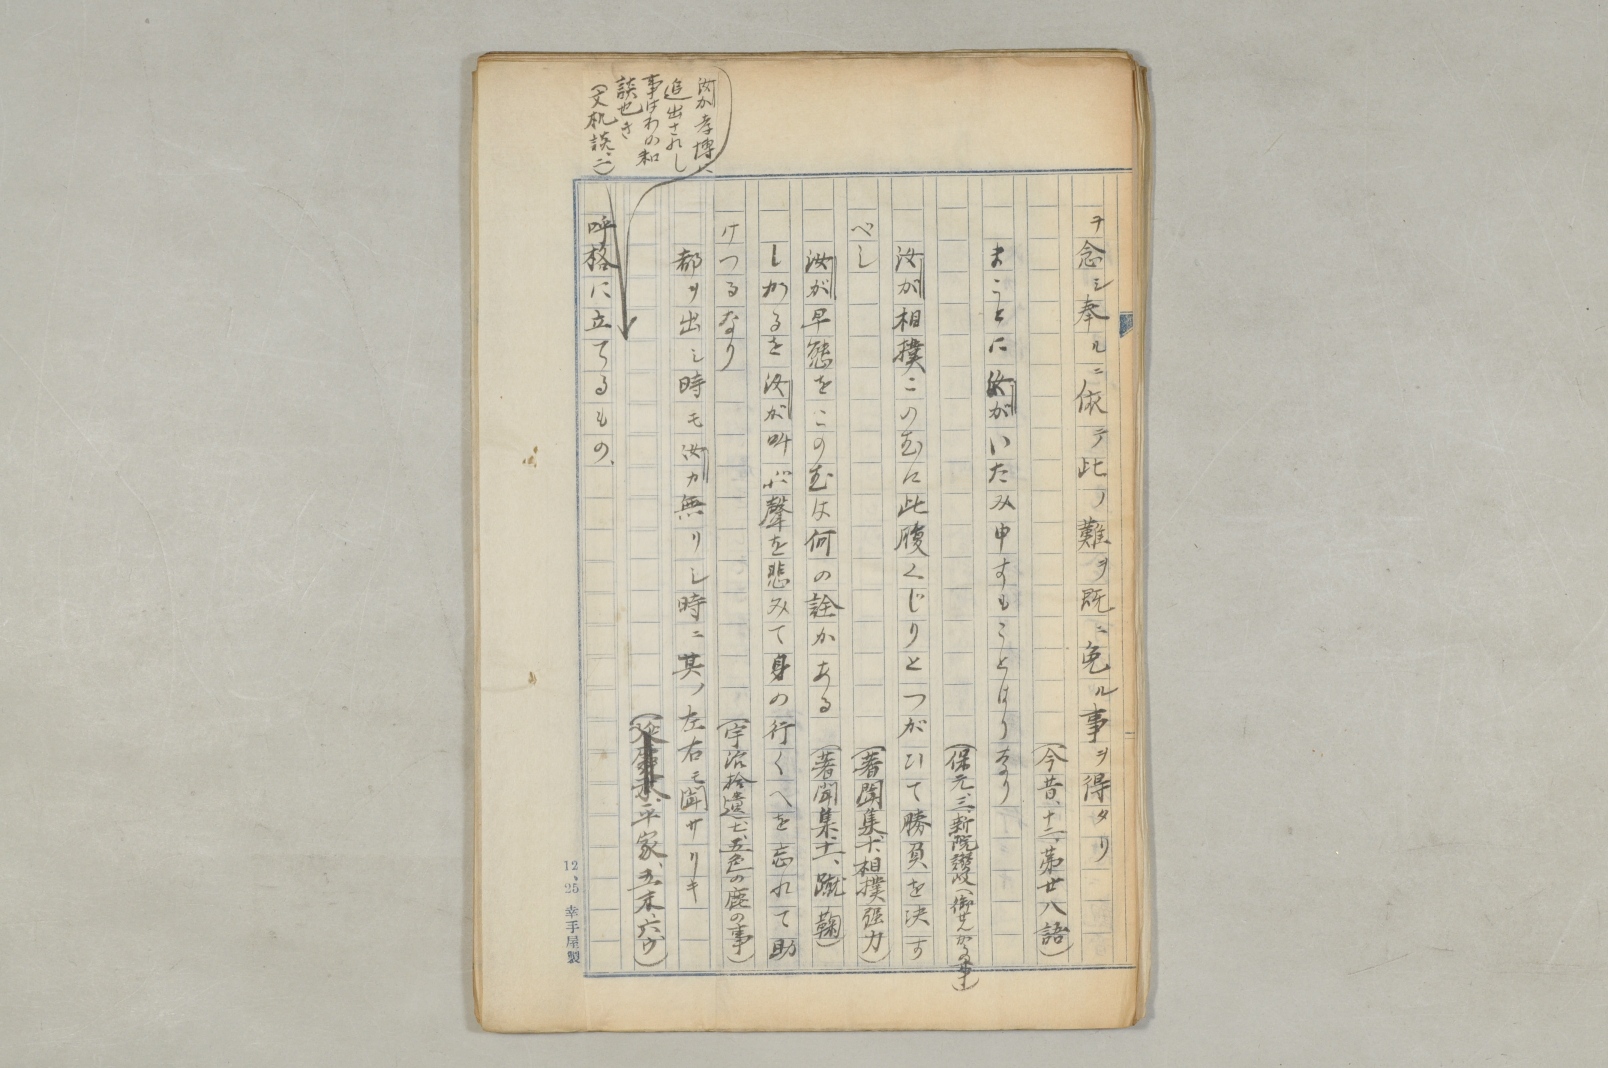 ヲ念シ奉ルニ依テ此ノ難ヲ既ニ免ル事ヲ得タリ
(今昔、十二、第廿八語)
まことに汝がいたみ申すもことはりなり
(保元、三、新院讃岐(御せんかうの事)
汝が相撲この㐂に此腹くじりとつがひて勝負を決す
べし
(著聞集、十、相撲强力)
汝が早態をこの㐂は何の詮かある
(著聞集、十一、蹴鞠)
しかるを汝が叫ぶ聲を悲みて身の行くへを忘れて助
けつるなり
(宇治拾遺、七、五色の鹿の事)
都ヲ出シ時モ汝カ無リシ時ニ其ノ左右モ聞サリキ
平家、五末、六ウ)
汝が孝博に
追出されし
事はわの和
談也き
(文机談、二)
呼格に立てるもの、
12、25 幸手屋製